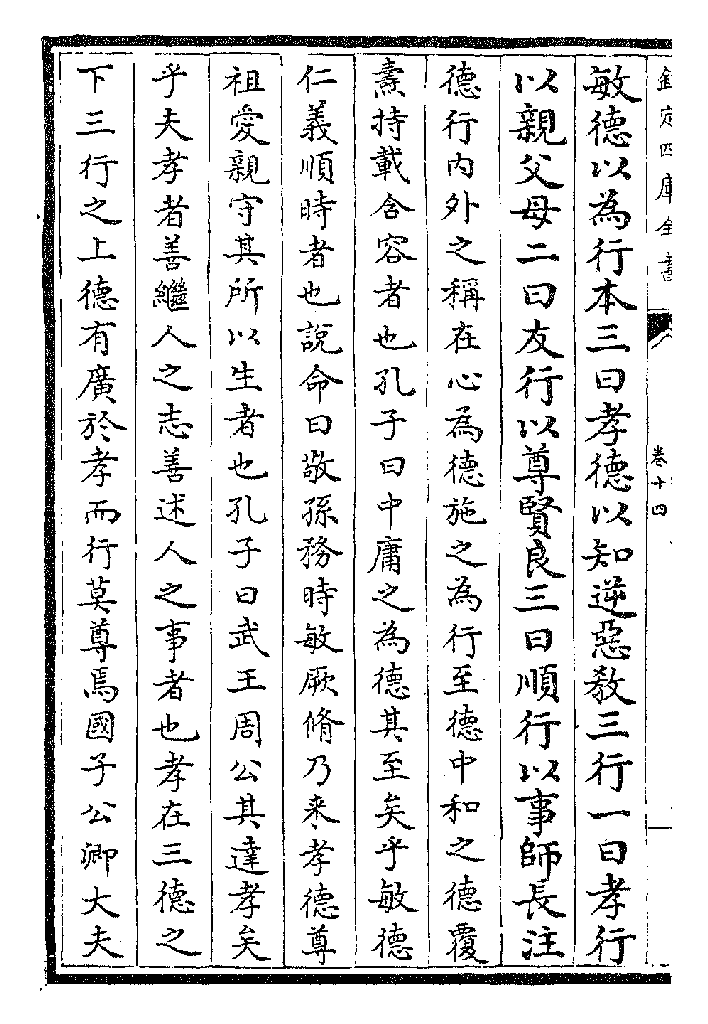 欽定四庫全書
卷十四
敏德以為行本三曰孝德以知逆惡教三行一曰孝行
以親父母二曰友行以尊賢良三曰順行以事師長注
德行内外之稱在心為德施之為行至德中和之德覆
燾持載含容者也孔子曰中庸之為德其至矣乎敏德
仁義順時者也說命曰敬孫務時敏厥脩乃來孝德尊
祖愛親守其所以生者也孔子曰武王周公其達孝矣
乎夫孝者善繼人之志善述人之事者也孝在三德之
下三行之上德有廣於孝而行莫尊焉國子公卿大夫